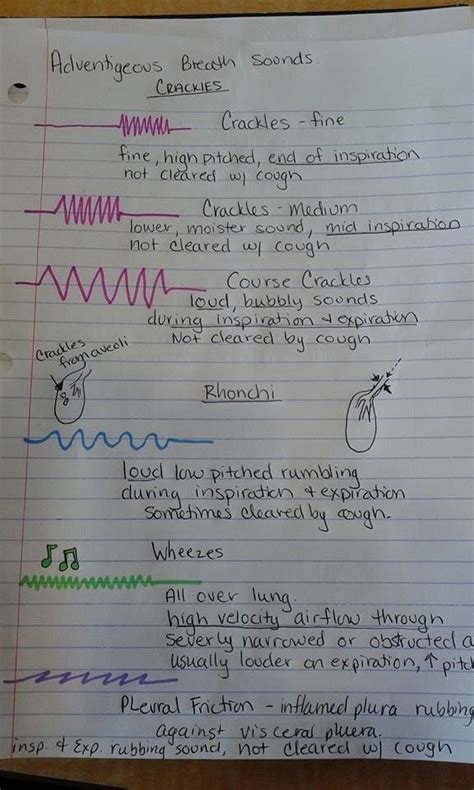 Adventigeous Breath Sounds.
CRACKlES
Crackles - fine
fine, high pitched, end of inspiration
not cleared w/ cough
Crackles - Medium
lower, moister sound, mid inspiration
not cleared w/ cough
Course Crackles
loud, bubbly sounds
during inspiration & expiration
Not cleared by cough
Crackles
from aveoli
Rhonchi
loud low pitched rumbling
during inspiration & expiration
Sometimes cleared by cough.
Wheezes
All over lung.
high velocity airflow through
severly narrowed or obstructed a
usually louder on expiration, ↑ pitch
Pleural Friction - inflamed plura rubbing
against visceral pluera.
insp. & Exp. rubbing sound, not cleared w/ cough